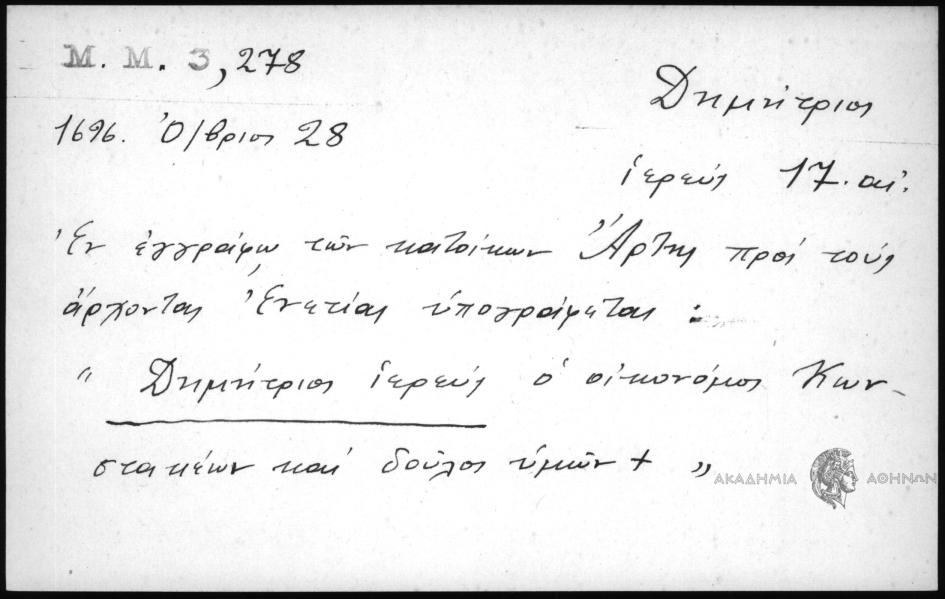 Μ. Μ. 3, 278
Δημήτριος
1696. Ὀ/βριος 28
ἱερεύς 17. αἰ.
Ἐν ἐγγράφῳ τῶν κατοίκων Ἄρτης πρός τούς
ἄρχοντας Ἐνετίας ὑπογράφεται :
" Δημήτριος ἱερεύς ὁ οἰκονόμος Κων-
στακέων καί δοῦλος ὑμῶν + "
ΑΚΑΔΗΜΙΑ ΑΘΗΝΩΝ